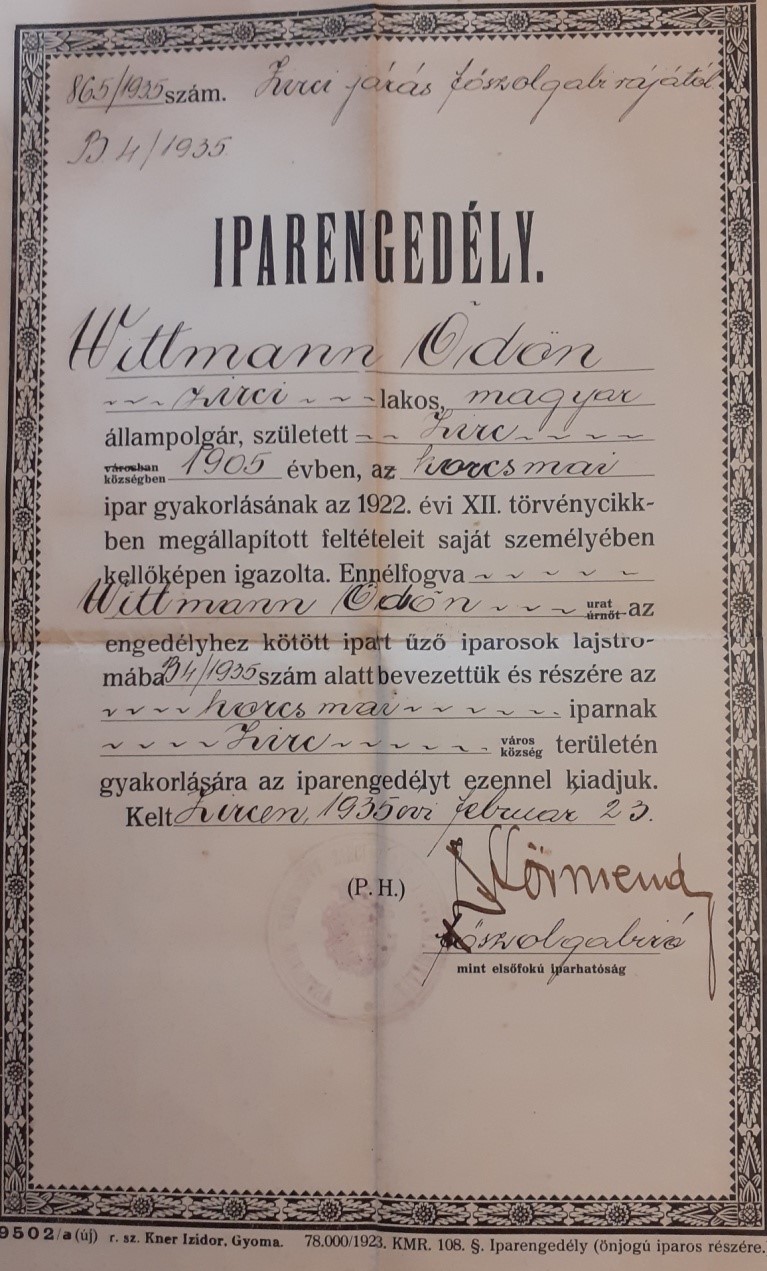 865/1935 szám. Zirci járás főszolgabirájától
B 4/1935
IPARENGEDÉLY.
Wittmann Ödön
zirci lakos, magyar
állampolgár, született Zirc
városban községben 1905 évben, az korcsmai
ipar gyakorlásának az 1922. évi XII. törvénycikk-
ben megállapított feltételeit saját személyében
kellőképen igazolta. Ennélfogva
Wittmann Ödön urat úrnőt az
engedélyhez kötött ipart űző iparosok lajstro-
mába B4/1935 szám alatt bevezettük és részére az
korcsmai iparnak
Zirc város község területén
gyakorlására az iparengedélyt ezennel kiadjuk.
Kelt Zircen, 1935 évi február 23.
(P. H.)
főszolgabiró
mint elsőfokú iparhatóság
9502/a (új) r. sz. Kner Izidor, Gyoma. 78.000/1923. KMR. 108. §. Iparengedély (önjogú iparos részére.